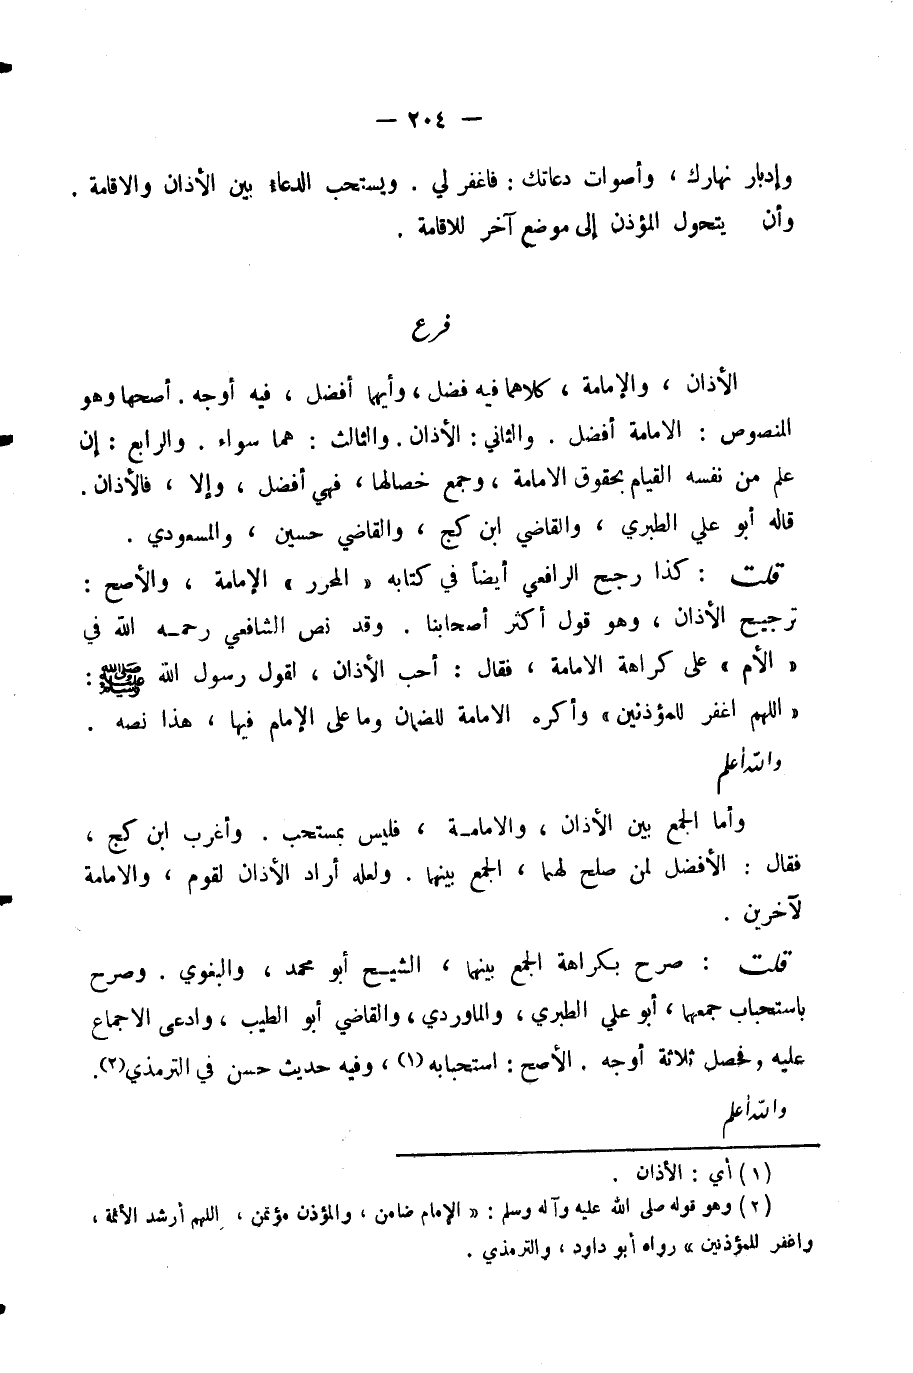 — ٢٠٤ —
وإدبار نهارك ، وأصوات دعاتك : فاغفر لي . ويستحب الدعاء بين الأذان والاقامة .
وأن يتحول المؤذن إلى موضع آخر للاقامة .
فرع
الأذان ، والإمامة ، كلاهما فيه فضل ، وأيهما أفضل ، فيه أوجه . أصحها وهو
المنصوص : الامامة أفضل . والثاني : الأذان . والثالث : هما سواء . والرابع : إن
علم من نفسه القيام بحقوق الامامة ، وجمع خصالها ، فهي أفضل ، وإلا ، فالأذان .
قاله أبو علي الطبري ، والقاضي ابن كج ، والقاضي حسين ، والمسعودي .
قلت : كذا رجح الرافعي أيضاً في كتابه « المحرر » الإمامة ، والأصح :
ترجيح الأذان ، وهو قول أكثر أصحابنا . وقد نص الشافعي رحمه الله في
« الأم » على كراهة الامامة ، فقال : أحب الأذان ، لقول رسول الله ﷺ :
« اللهم اغفر للمؤذنين » وأكره الامامة للضمان وما على الإمام فيها ، هذا نصه .
والله أعلم
وأما الجمع بين الأذان ، والامامة ، فليس بمستحب . وأغرب ابن كج ،
فقال : الأفضل لمن صلح لهما ، الجمع بينهما . ولعله أراد الأذان لقوم ، والامامة
لآخرين .
قلت : صرح بكراهة الجمع بينهما ، الشيخ أبو محمد ، والبغوي . وصرح
باستحباب جمعهما ، أبو علي الطبري ، والماوردي ، والقاضي أبو الطيب ، وادعى الاجماع
عليه و فحصل ثلاثة أوجه . الأصح : استحبابه (١) ، وفيه حديث حسن في الترمذي (٢) .
والله أعلم
(١) أي : الأذان .
(٢) وهو قوله صلى الله عليه وآله وسلم : « الإمام ضامن ، والمؤذن مؤتمن ، اللهم أرشد الأئمة ،
واغفر للمؤذنين » رواه أبو داود ، والترمذي .